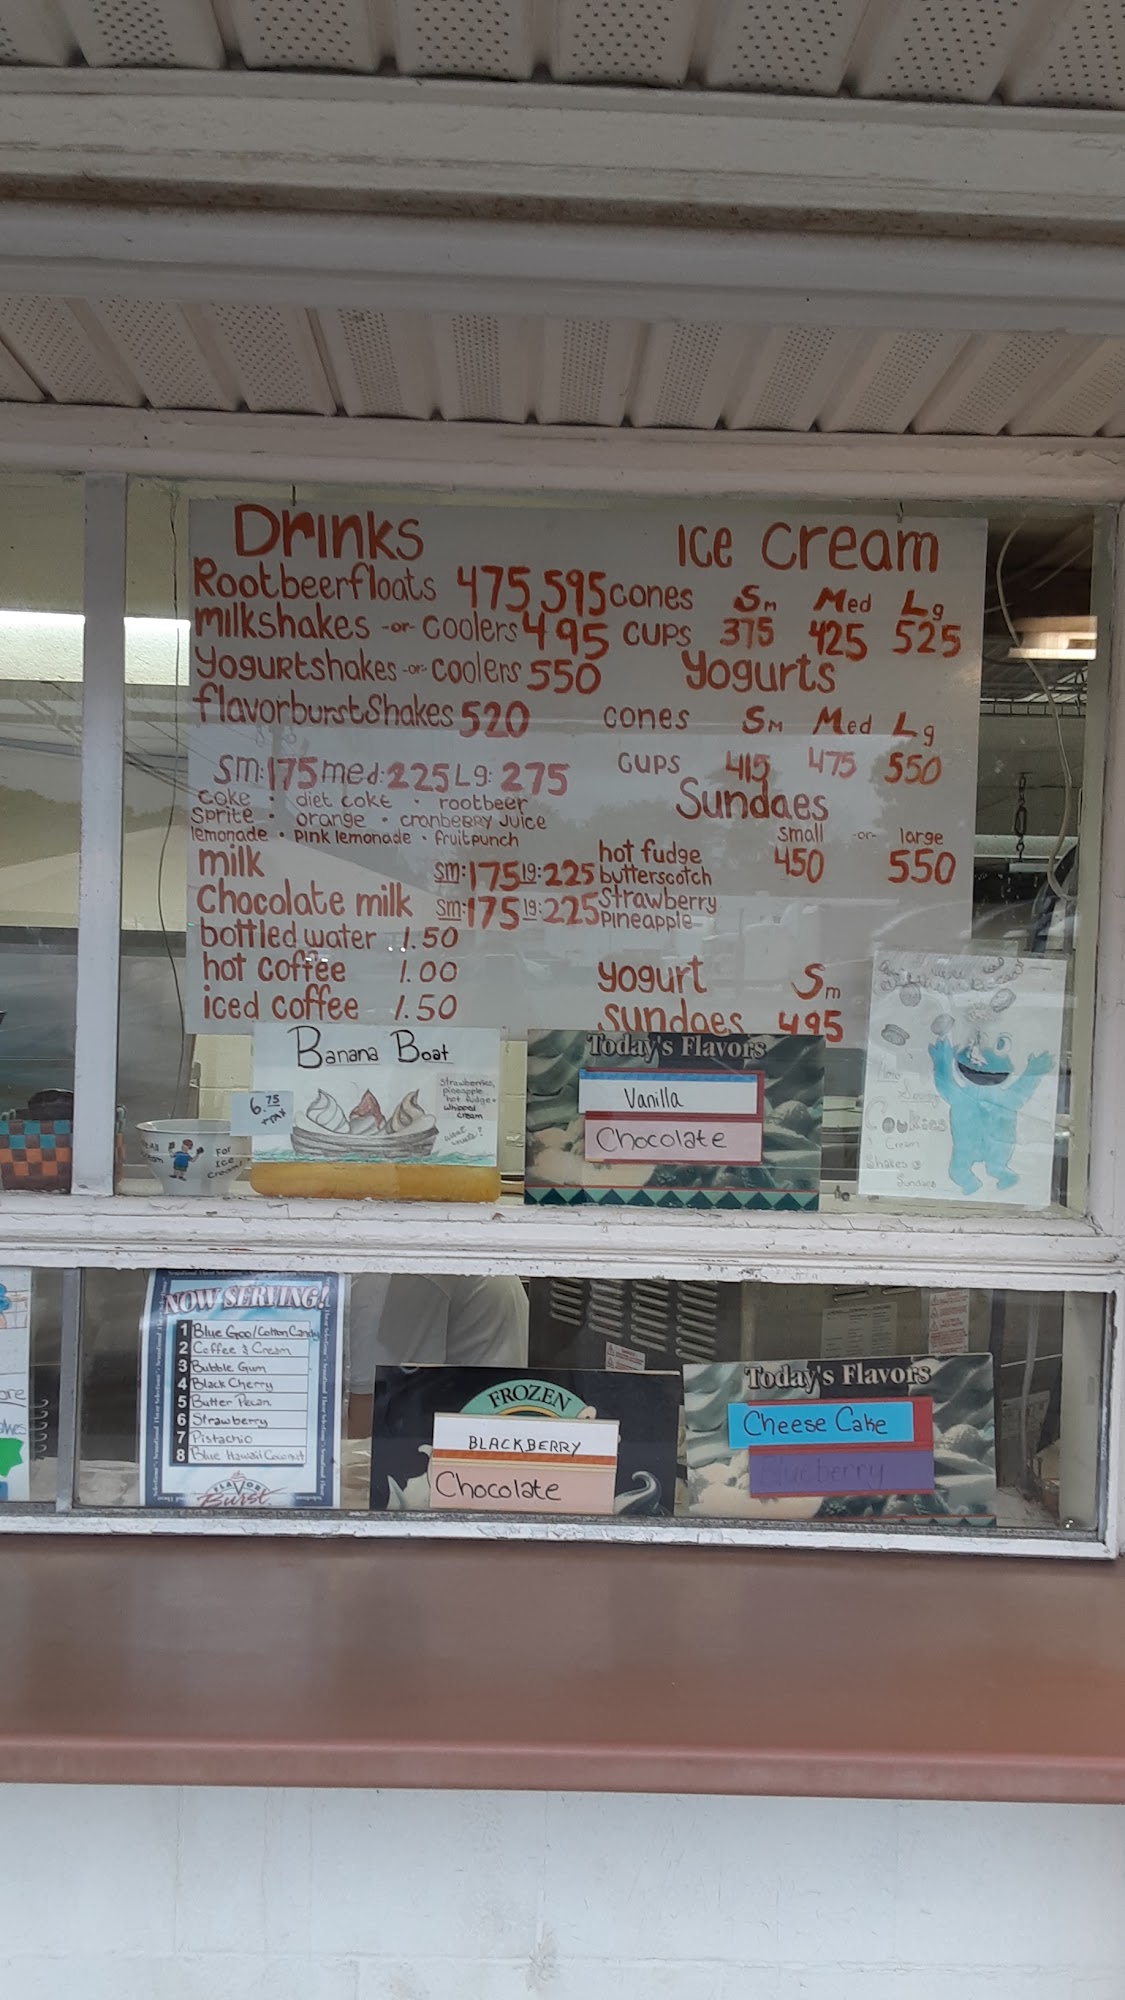 Drinks
Rootbeerfloats 475 595
milkshakes -or- coolers 495
yogurtshakes -or- coolers 550
flavorburstshakes 520
sm: 175 med: 225 Lg: 275
coke · diet coke · rootbeer
sprite · orange · cranberry juice
lemonade · pink lemonade · fruitpunch
milk sm: 175 lg: 225
Chocolate milk sm: 175 lg: 225
bottled water 1.50
hot coffee 1.00
iced coffee 1.50
Ice Cream
cones Sm Med Lg
cups 375 425 525
yogurts
cones Sm Med Lg
cups 415 475 550
Sundaes
small -or- large
hot fudge 450 550
butterscotch
strawberry
pineapple
yogurt Sm
sundaes 495
Banana Boat
6.75
+TAX
strawberries,
pineapple
hot fudge +
whipped
cream
For
Ice
Cream
Today's Flavors
Vanilla
Chocolate
Cookies
Cream
Shakes
Sundaes
NOW SERVING!
1 Blue Goo/Cotton Candy
2 Coffee & Cream
3 Bubble Gum
4 Black Cherry
5 Butter Pecan
6 Strawberry
7 Pistachio
8 Blue Hawaii Coconut
FLAVOR
Burst
FROZEN
BLACKBERRY
Chocolate
Today's Flavors
Cheese Cake
Blueberry